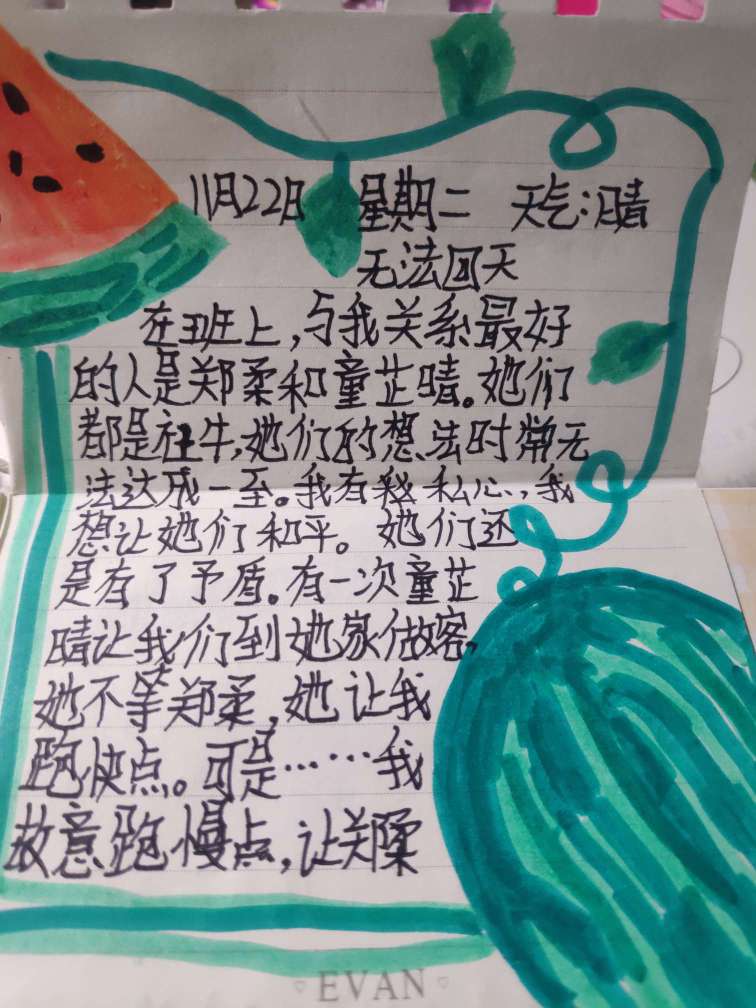 11月22日 星期二 天气:晴
无法回天
在班上,与我关系最好
的人是郑柔和童芷晴。她们
都是社牛,她们的想法时常无
法达成一至。我有我私心,我
想让她们和平。她们还
是有了矛盾。有一次童芷
晴让我们到她家做客,
她不等郑柔,她让我
跑快点。可是……我
故意跑慢点,让郑柔
EVAN